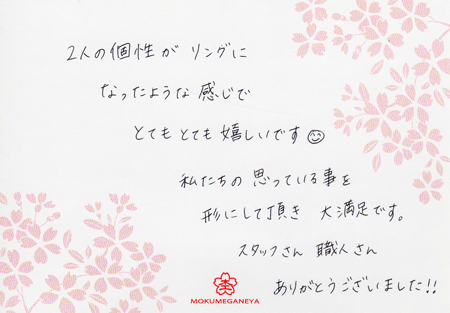 2人の個性が リングに
なったような 感じで
とても とても 嬉しいです
私たちの 思っている事を
形にして頂き 大満足です。
スタッフさん 職人さん
ありがとうございました!!
MOKUMEGANEYA